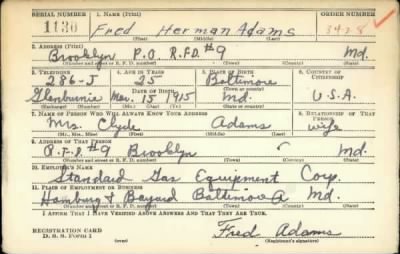 SERIAL NUMBER 1. NAME (Print) ORDER NUMBER
1130 Fred Herman Adams 3428
(First) (Middle) (Last)
2. ADDRESS (Print)
Brooklyn P.O. R.F.D. #9 Md.
(Number and street or R. F. D. number) (Town) (County) (State)
3. TELEPHONE 4. AGE IN YEARS 5. PLACE OF BIRTH 6. COUNTRY OF CITIZENSHIP
286-J 25 Baltimore
DATE OF BIRTH (Town or county)
Glenburnie Mar. 15 1915 Md. U.S.A.
(Exchange) (Number) (Mo.) (Day) (Yr.) (State or country)
7. NAME OF PERSON WHO WILL ALWAYS KNOW YOUR ADDRESS 8. RELATIONSHIP OF THAT PERSON
Mrs. Clyde Adams wife
(Mr., Mrs., Miss) (First) (Middle) (Last)
9. ADDRESS OF THAT PERSON
R.F.D #9 Brooklyn Md.
(Number and street or R. F. D. number) (Town) (County) (State)
10. EMPLOYER'S NAME
Standard Gas Equipment Corp.
11. PLACE OF EMPLOYMENT OR BUSINESS
Hamburg & Bayard Baltimore Md.
(Number and street or R. F. D. number) (Town) (County) (State)
I AFFIRM THAT I HAVE VERIFIED ABOVE ANSWERS AND THAT THEY ARE TRUE.
REGISTRATION CARD
D. S. S. Form 1 Fred Adams
(Registrant's signature)